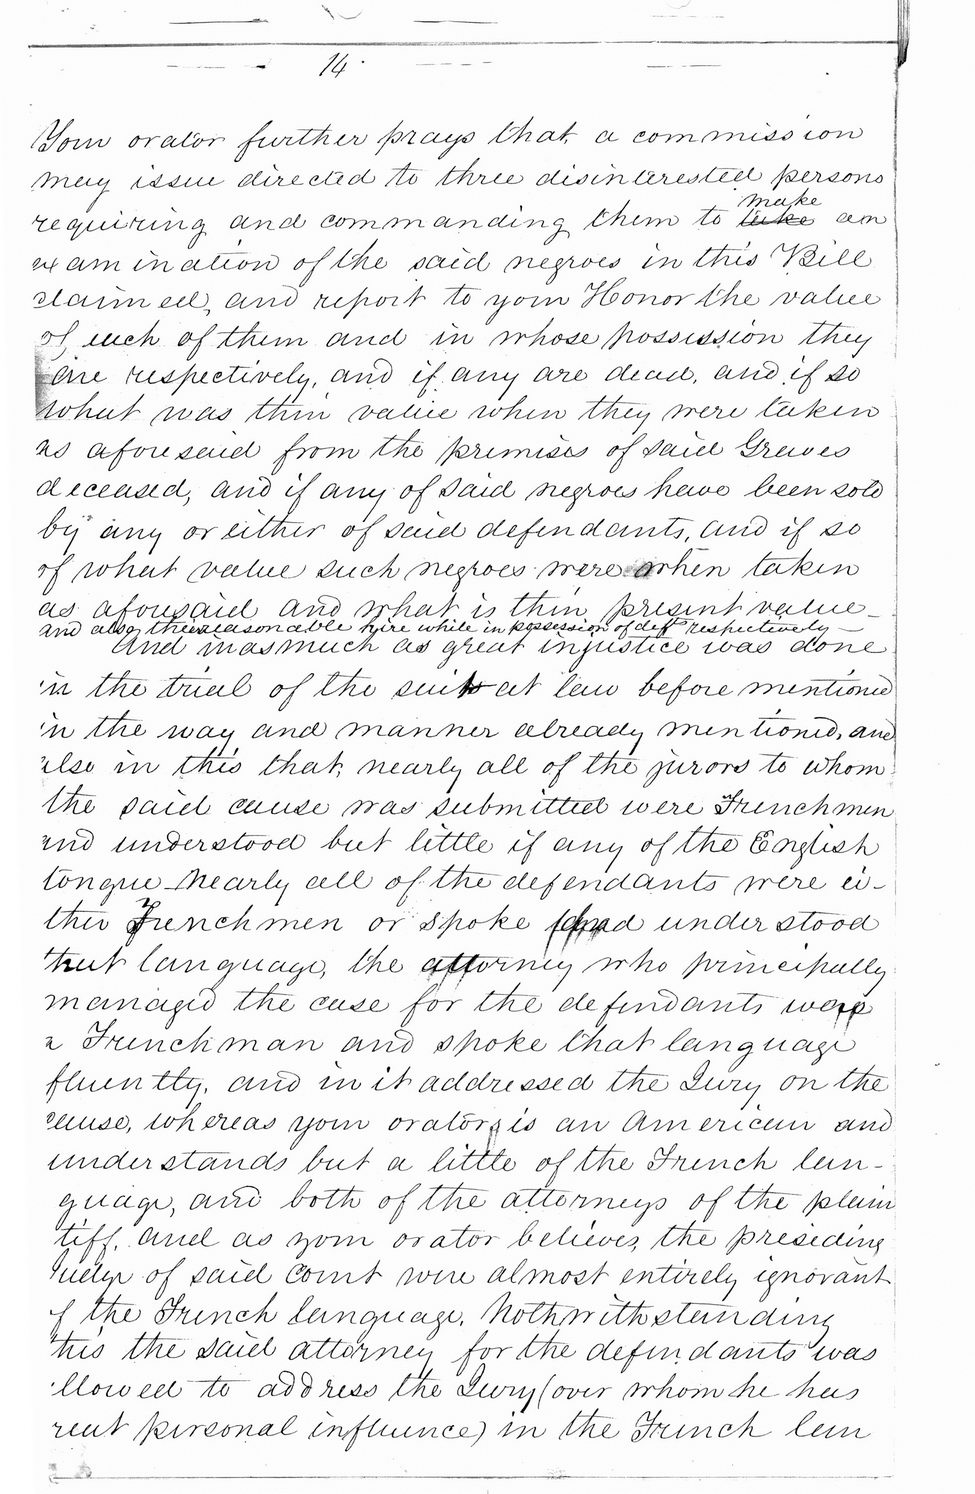 14.
Your orator further prays that a commission
may issue directed to three disinterested persons
requiring and commanding them to take make an
examination of the said negroes in this Bill
claimed, and report to your Honor the value
of each of them and in whose possession they
are respectively, and if any are dead, and if so
what was their value when they were taken
as aforesaid from the premises of said Graves
deceased, and if any of said negroes have been sold
by any or either of said defendants, and if so
of what value such negroes were when taken
as aforesaid and what is their present value
and also their reasonable hire while in possession of defts respectively
And inasmuch as great injustice was done
in the trial of the suit at law before mentioned
in the way and manner already mentioned, and
also in this that, nearly all of the jurors to whom
the said cause was submitted were Frenchmen
and understood but little if any of the English
tongue - Nearly all of the defendants were ei-
ther Frenchmen or spoke and understood
that language, the attorney who principally
managed the case for the defendants were
a Frenchman and spoke that language
fluently, and in it addressed the Jury on the
cause, whereas your orator is an American and
understands but a little of the French lan-
guage, and both of the attorneys of the plain
tiff, and as your orator believes, the presiding
Judge of said Court were almost entirely ignorant
of the French language. Nothwithstanding
this the said attorney for the defendants was
llowed to address the Jury (over whom he has
reat personal influence) in the French lan